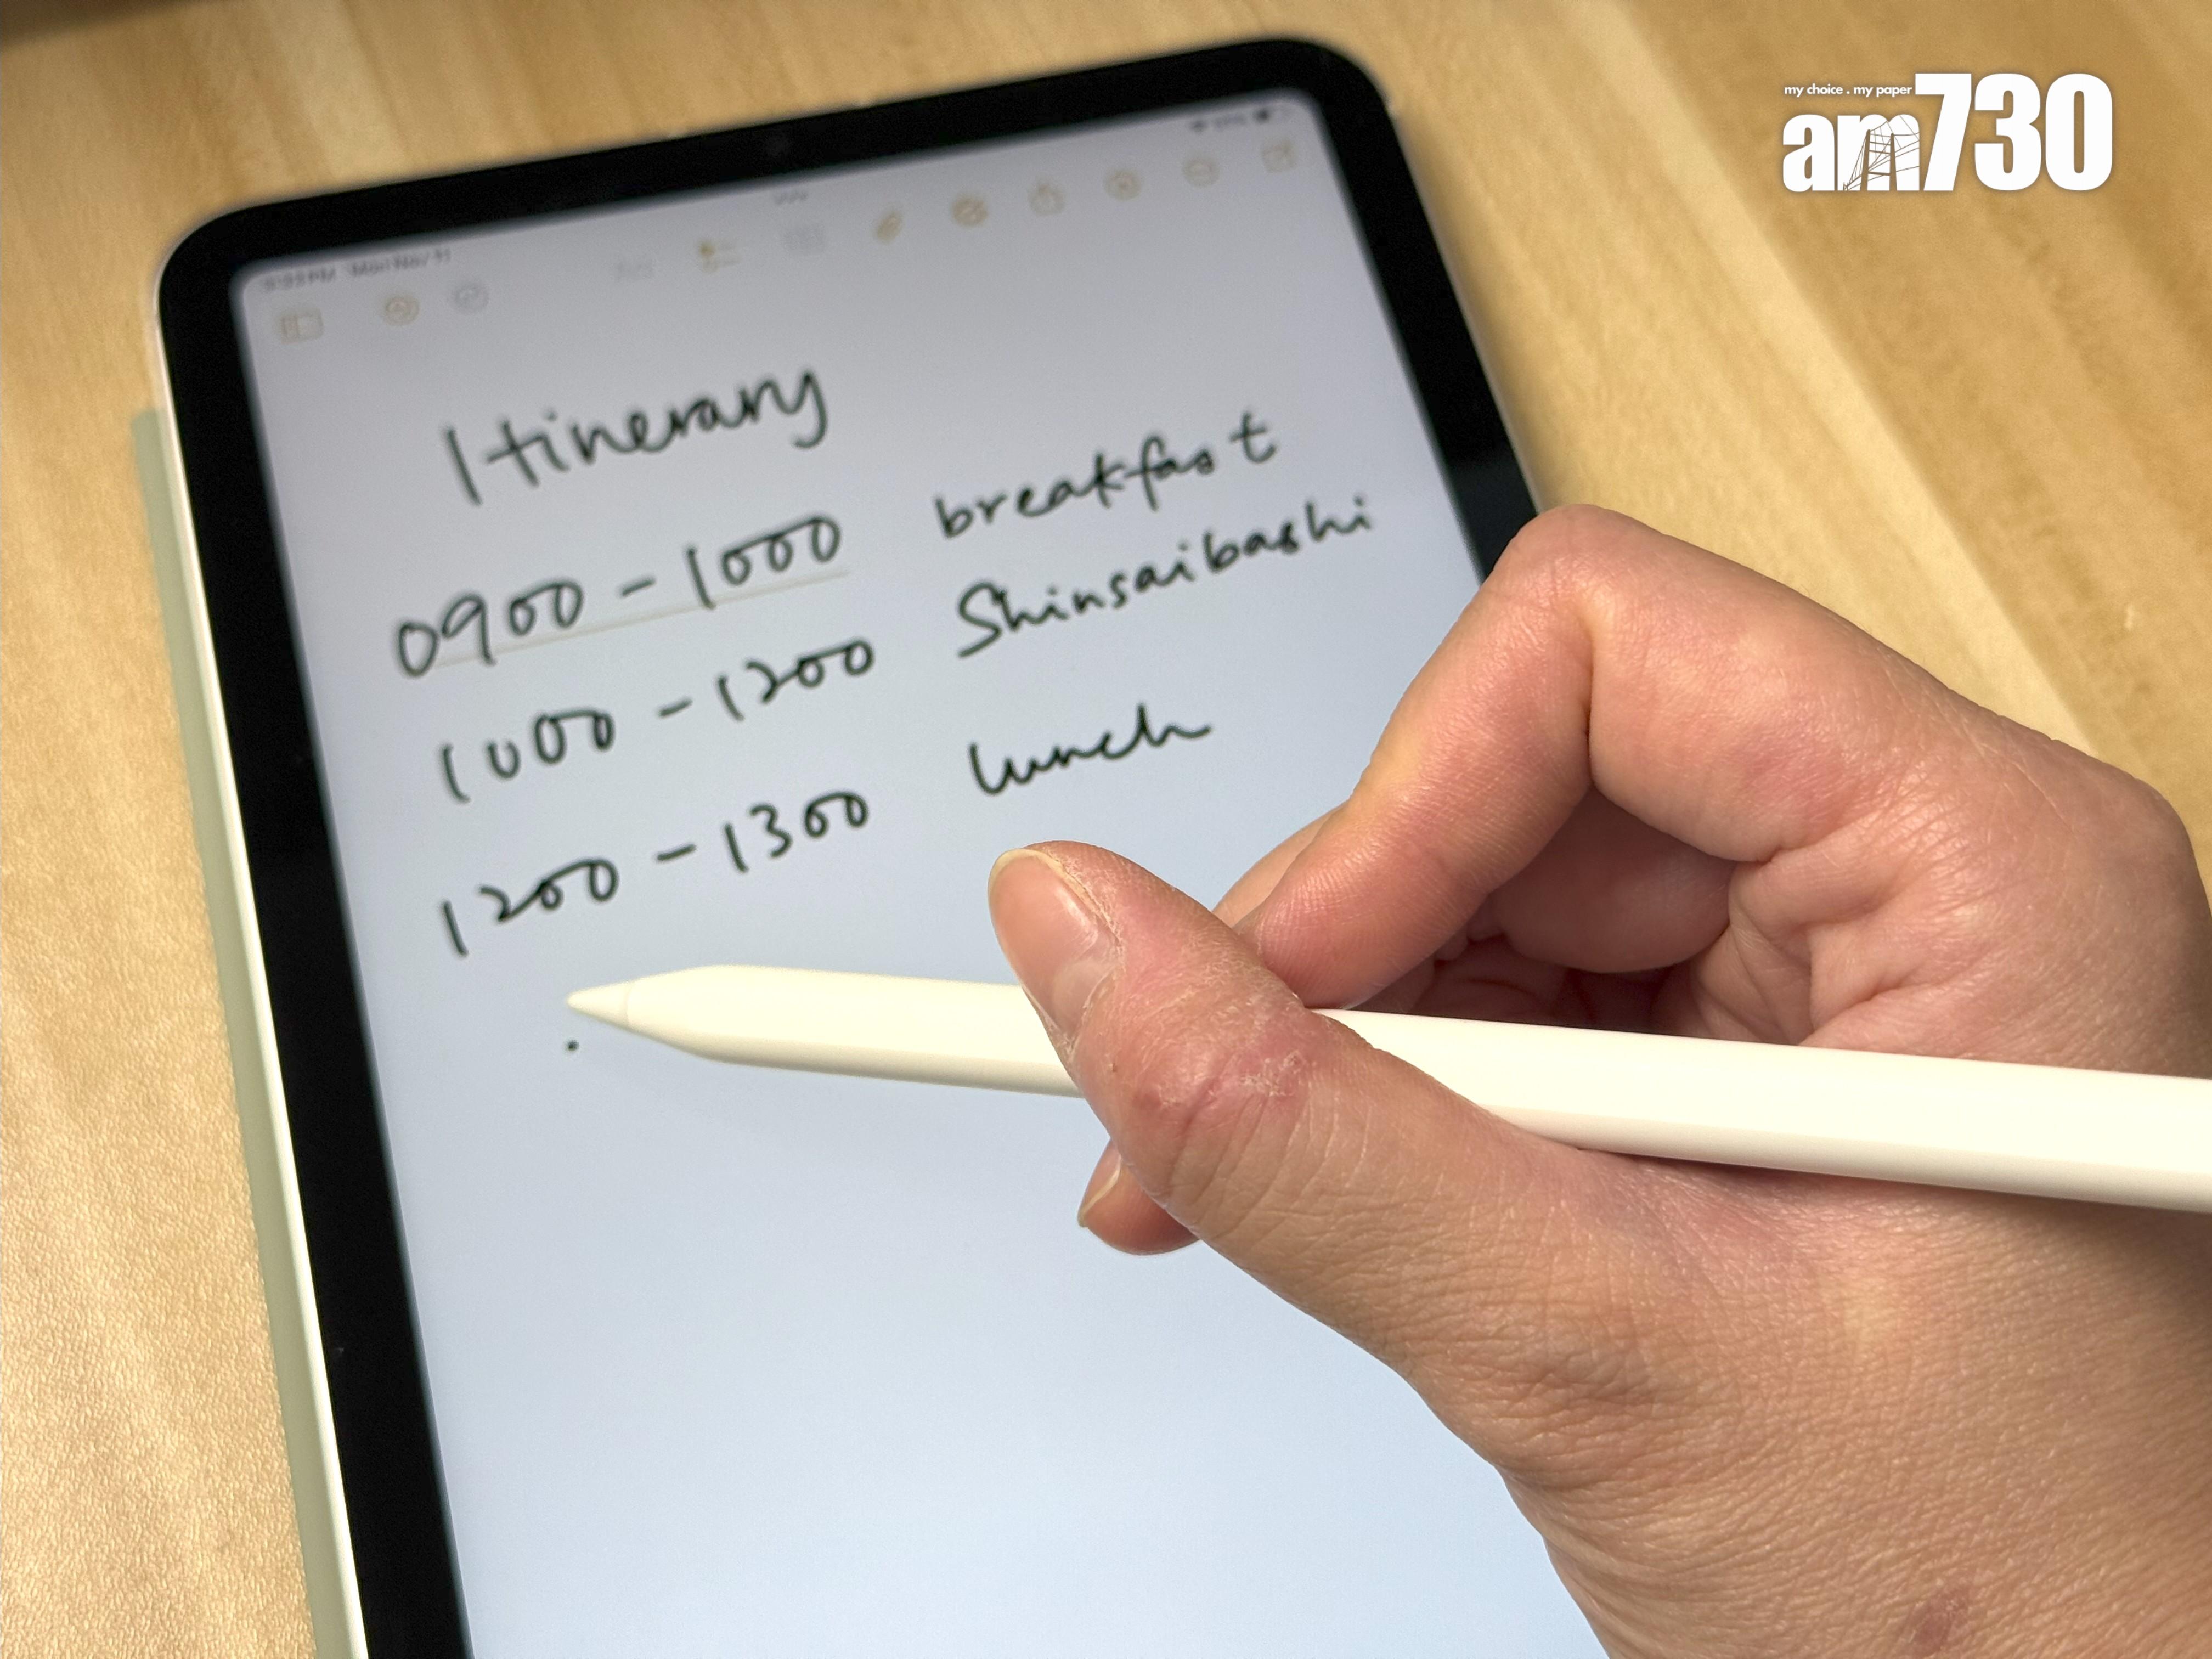 my choice . my paper
am730
Mon Nov 11
Itinerary
0900 - 1000 breakfast
1000 - 1200 Shinsaibashi
1200 - 1300 lunch